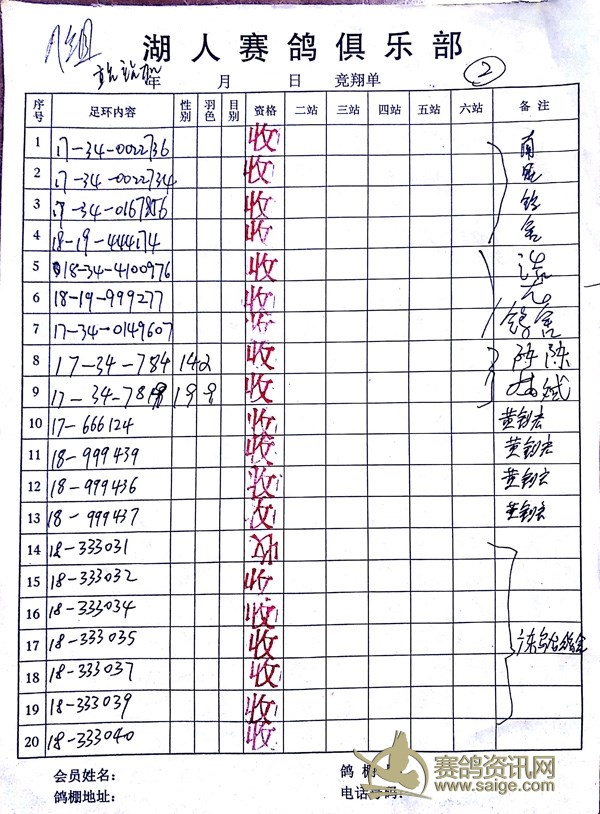 湖人赛鸽俱乐部
年 月 日 竞翔单 2
序号 足环内容 性别 羽色 目别 资格 二站 三站 四站 五站 六站 备注
1 17-34-0022736 收
2 17-34-0022734 收
3 17-34-0167856 收
4 18-19-444174 收
5 18-34-4100976 收
6 18-19-999277 收
7 17-34-0149607 收 鸽舍
8 17-34-784 142 收 陈陈
9 17-34-78 198 收 斌
10 17-666124 收 黄钊宏
11 18-999439 收 黄钊宏
12 18-999436 收 黄钊宏
13 18-999437 收 黄钊宏
14 18-333031 收
15 18-333032 收
16 18-333034 收
17 18-333035 收
18 18-333037 收
19 18-333039 收
20 18-333040 收
会员姓名： 鸽棚
鸽棚地址： 电话号码：
赛鸽资讯网
www.saige.com